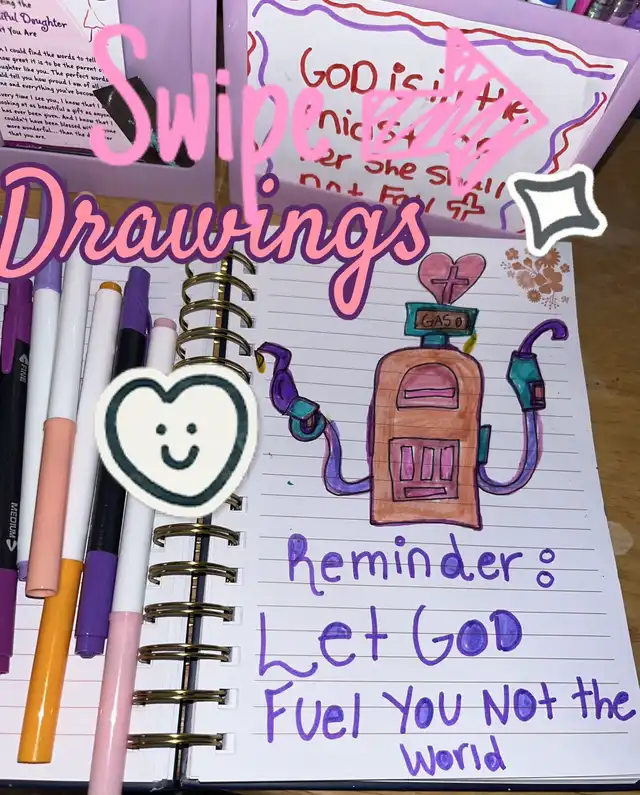 Daughter
t You Are
I could find the words to tell
great it is to be the parent
ghter like you. The perfect words
ld tell you how proud I am of all
me and everything you've become
very time I see you, I know that I
ooking at as beautiful a gift as any
been given. And I know I
couldn't have been blessed with
more wonderful... than the d
you are.
GOD is in the
her She Shall
not Fall
Swipe
Drawings
FINE
MEDIUM
GAS
Reminder:
Let GOD
Fuel You Not the
World